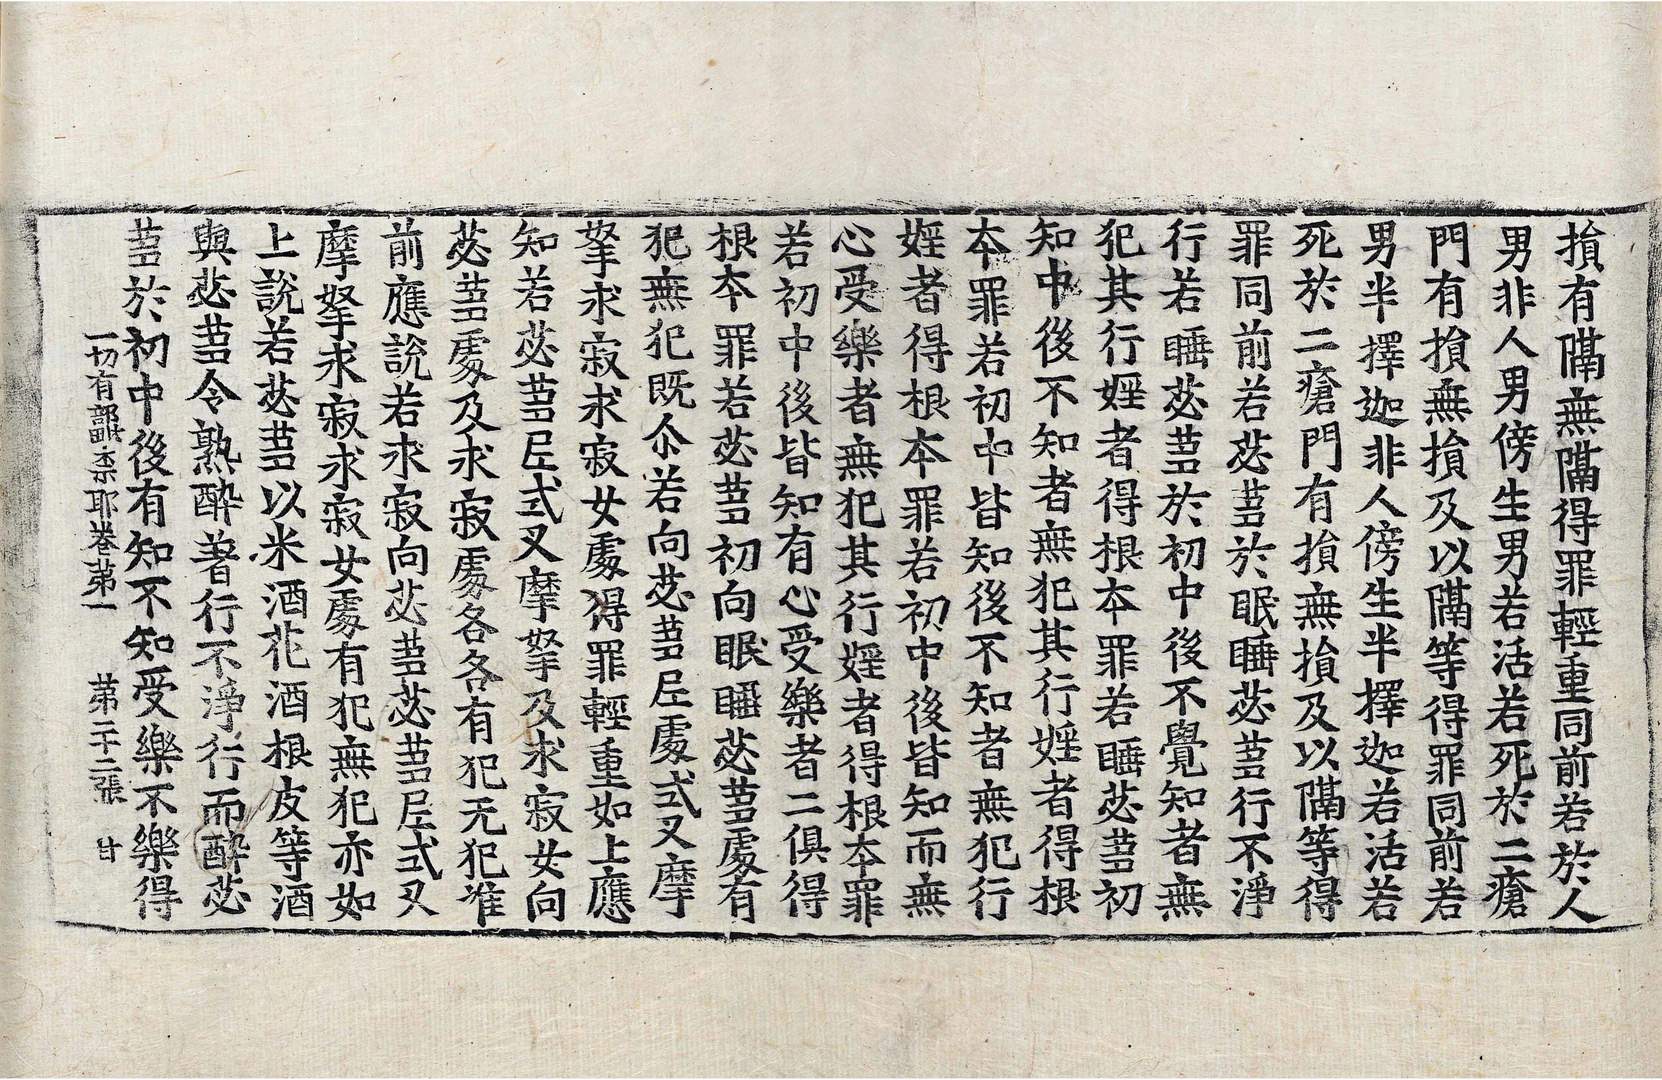 損有隔無隔得罪輕重同前若於人
男非人男傍生男若活若死於二瘡
門有損無損及以隔等得罪同前若
男半擇迦非人傍生半擇迦若活若
死於二瘡門有損無損及以隔等得
罪同前若苾芻於眠睡苾芻行不淨
行若睡苾芻於初中後不覺知者無
犯其行婬者得根本罪若睡苾芻初
知中後不知者無犯其行婬者得根
本罪若初中皆知後不知者無犯行
婬者得根本罪若初中後皆知而無
心受樂者無犯其行婬者得根本罪
若初中後皆知有心受樂者二俱得
根本罪若苾芻初向眠睡苾芻處有
犯無犯既尒若向苾芻尼處式叉摩
拏求寂求寂女處得罪輕重如上應
知若苾芻尼式叉摩拏及求寂女向
苾芻處及求寂處各各有犯无犯准
前應說若求寂向苾芻苾芻尼式叉
摩拏求寂求寂女處有犯無犯亦如
上說若苾芻以米酒花酒根皮等酒
與苾芻令熟醉著行不淨行而醉苾
芻於初中後有知不知受樂不樂得
一切有部毗奈耶卷第一 第二十二張 甘